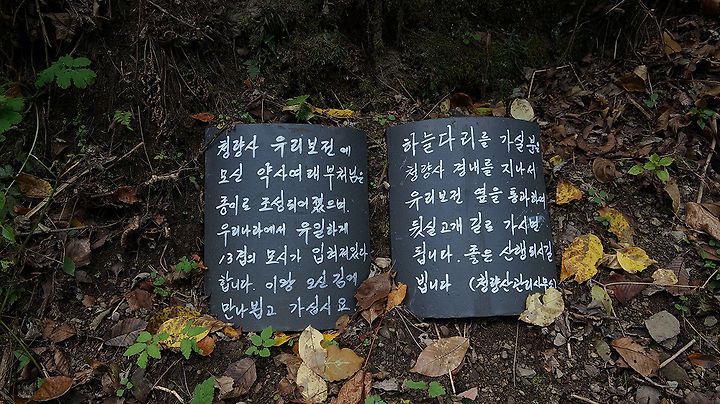 청량사 유리보전에
모신 약사여래부처님은
종이로 조성되어졌으며,
우리나라에서 유일하게
13겹의 모시가 입혀져있다
합니다. 이왕 오신 길에
만나뵙고 가십시요
하늘다리를 가실분은
청량사 경내를 지나서
유리보전 옆을 통과하여
뒷실고개 길로 가시면
됩니다. 좋은 산행되시길
빕니다 (청량산관리사무소)